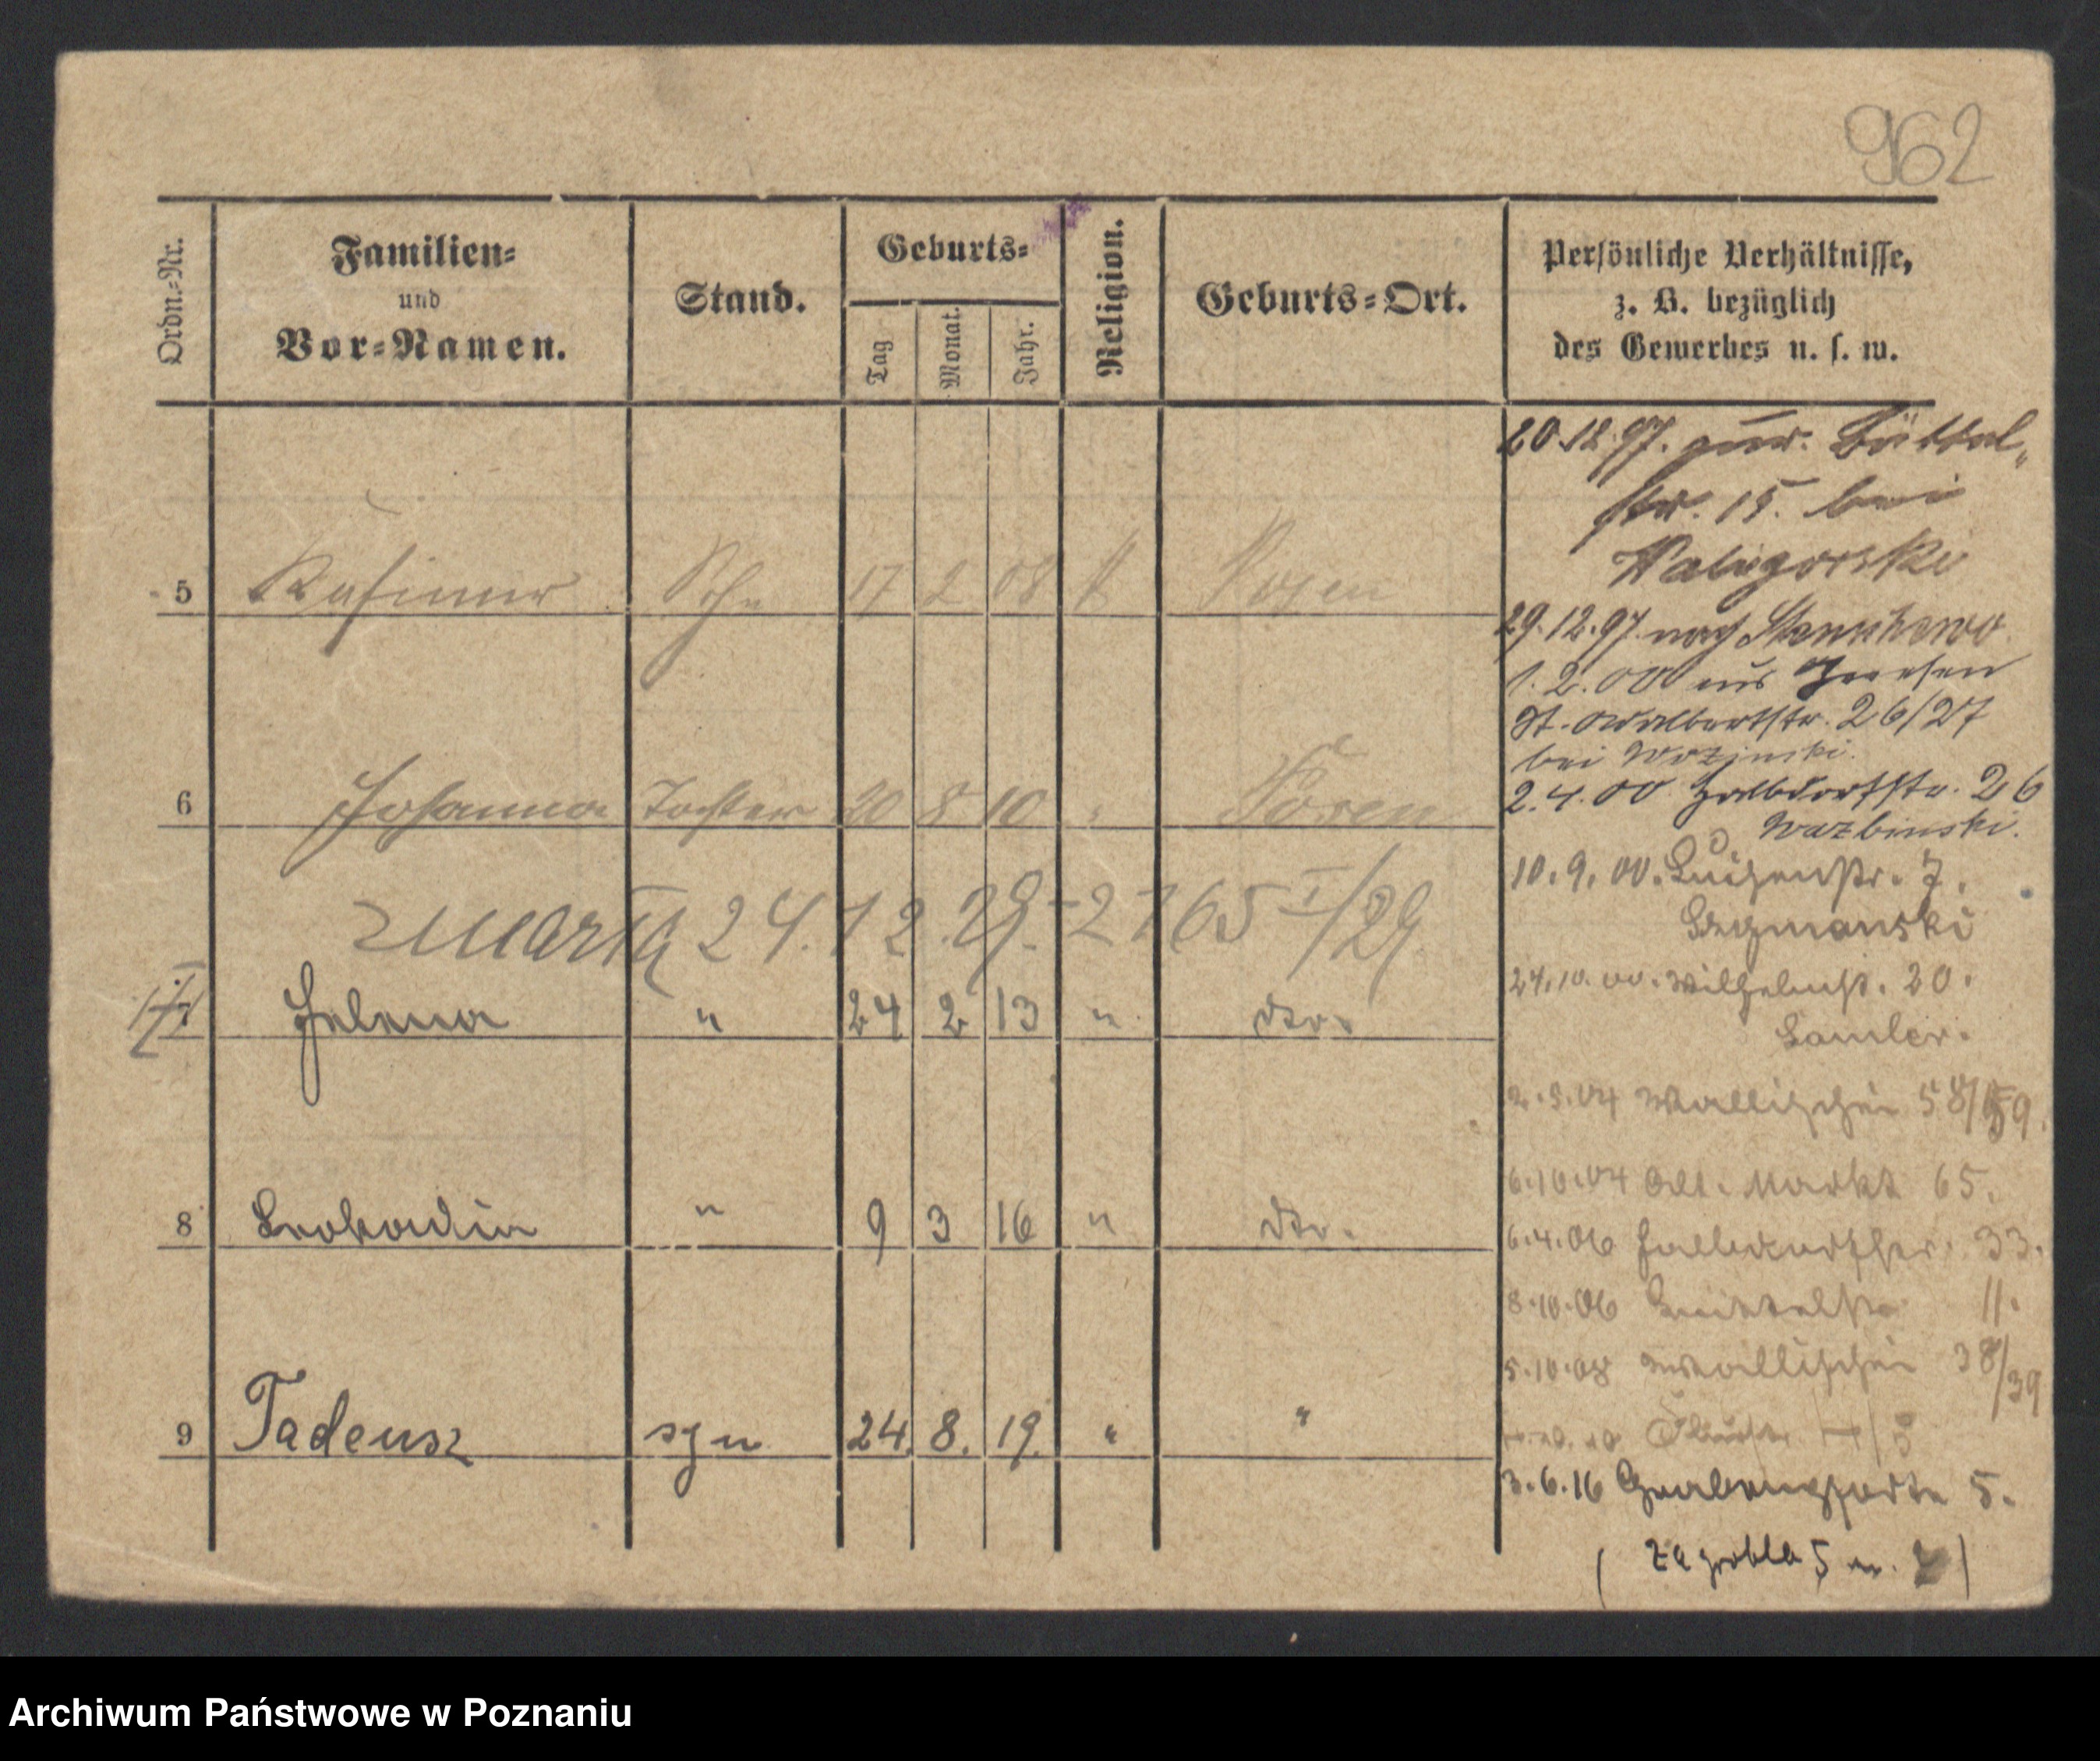 962
Ordn.-Nr.
Familien-
und
Vor-Namen.
Stand.
Geburts-
Tag
Monat.
Jahr.
Religion.
Geburts-Ort.
Persönliche Verhältnisse,
z. B. bezüglich
des Gewerbes u. s. w.
5 Kasimir Sohn 17 2 08 k Posen
6 Johanna Tochter 20 8 10 " Posen
24.12.29. - 2165 I/29
Helena " 24 2 13 " dto.
8 Leokadia " 9 3 16 " dto.
9 Tadeusz syn 24. 8. 19. " "
20.12.97. Büttel-
str. 15. bei
Waligorski
29.12.97. nach
1.2.00 aus Gnesen
St. Adalbertstr. 26/27
bei
2.4.00 Halbdorfstr. 26
Wazbinski.
10.9.00. Luisenstr. 7.
Szymanski
24.10.00. Wilhelmst. 20.
2.3.04 Wallischei 58/59.
6.10.04 Alt. Markt 65.
6.4.06 Halbdorfstr. 33.
8.10.06 Büttelstr. 11.
5.10.08 Wallischei 38/39
3.6.16 Grabenpforte 5.
(Zagrobla 5 m.